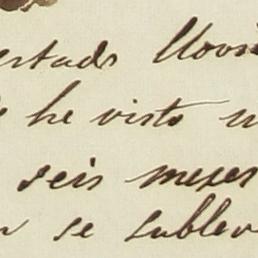 ertads llovi
he visto u
seis meses
se sublev